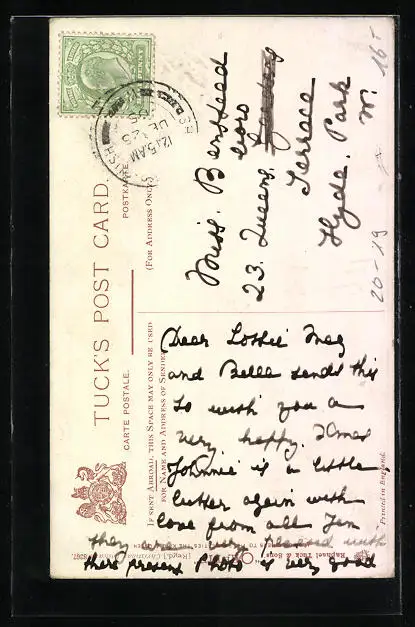 TUCK'S POST CARD.
CARTE POSTALE.
POSTKARTE.
(FOR ADDRESS ONLY)
IF SENT ABROAD, THIS SPACE MAY ONLY BE USED
FOR NAME AND ADDRESS OF SENDER
12.15 AM
DE 25
Miss. Bensteed
23. Queens,boro
Terrace
Hyde. Park
W.
16-
20-19
Dear Lottie Meg
and Bella sends this
to wish you a
very. happy. Xmas
Johnnie is a little
better again with
love from all Jim
they very pleased with
there present Photo is very good
Raphael Tuck & Sons
Printed in England.